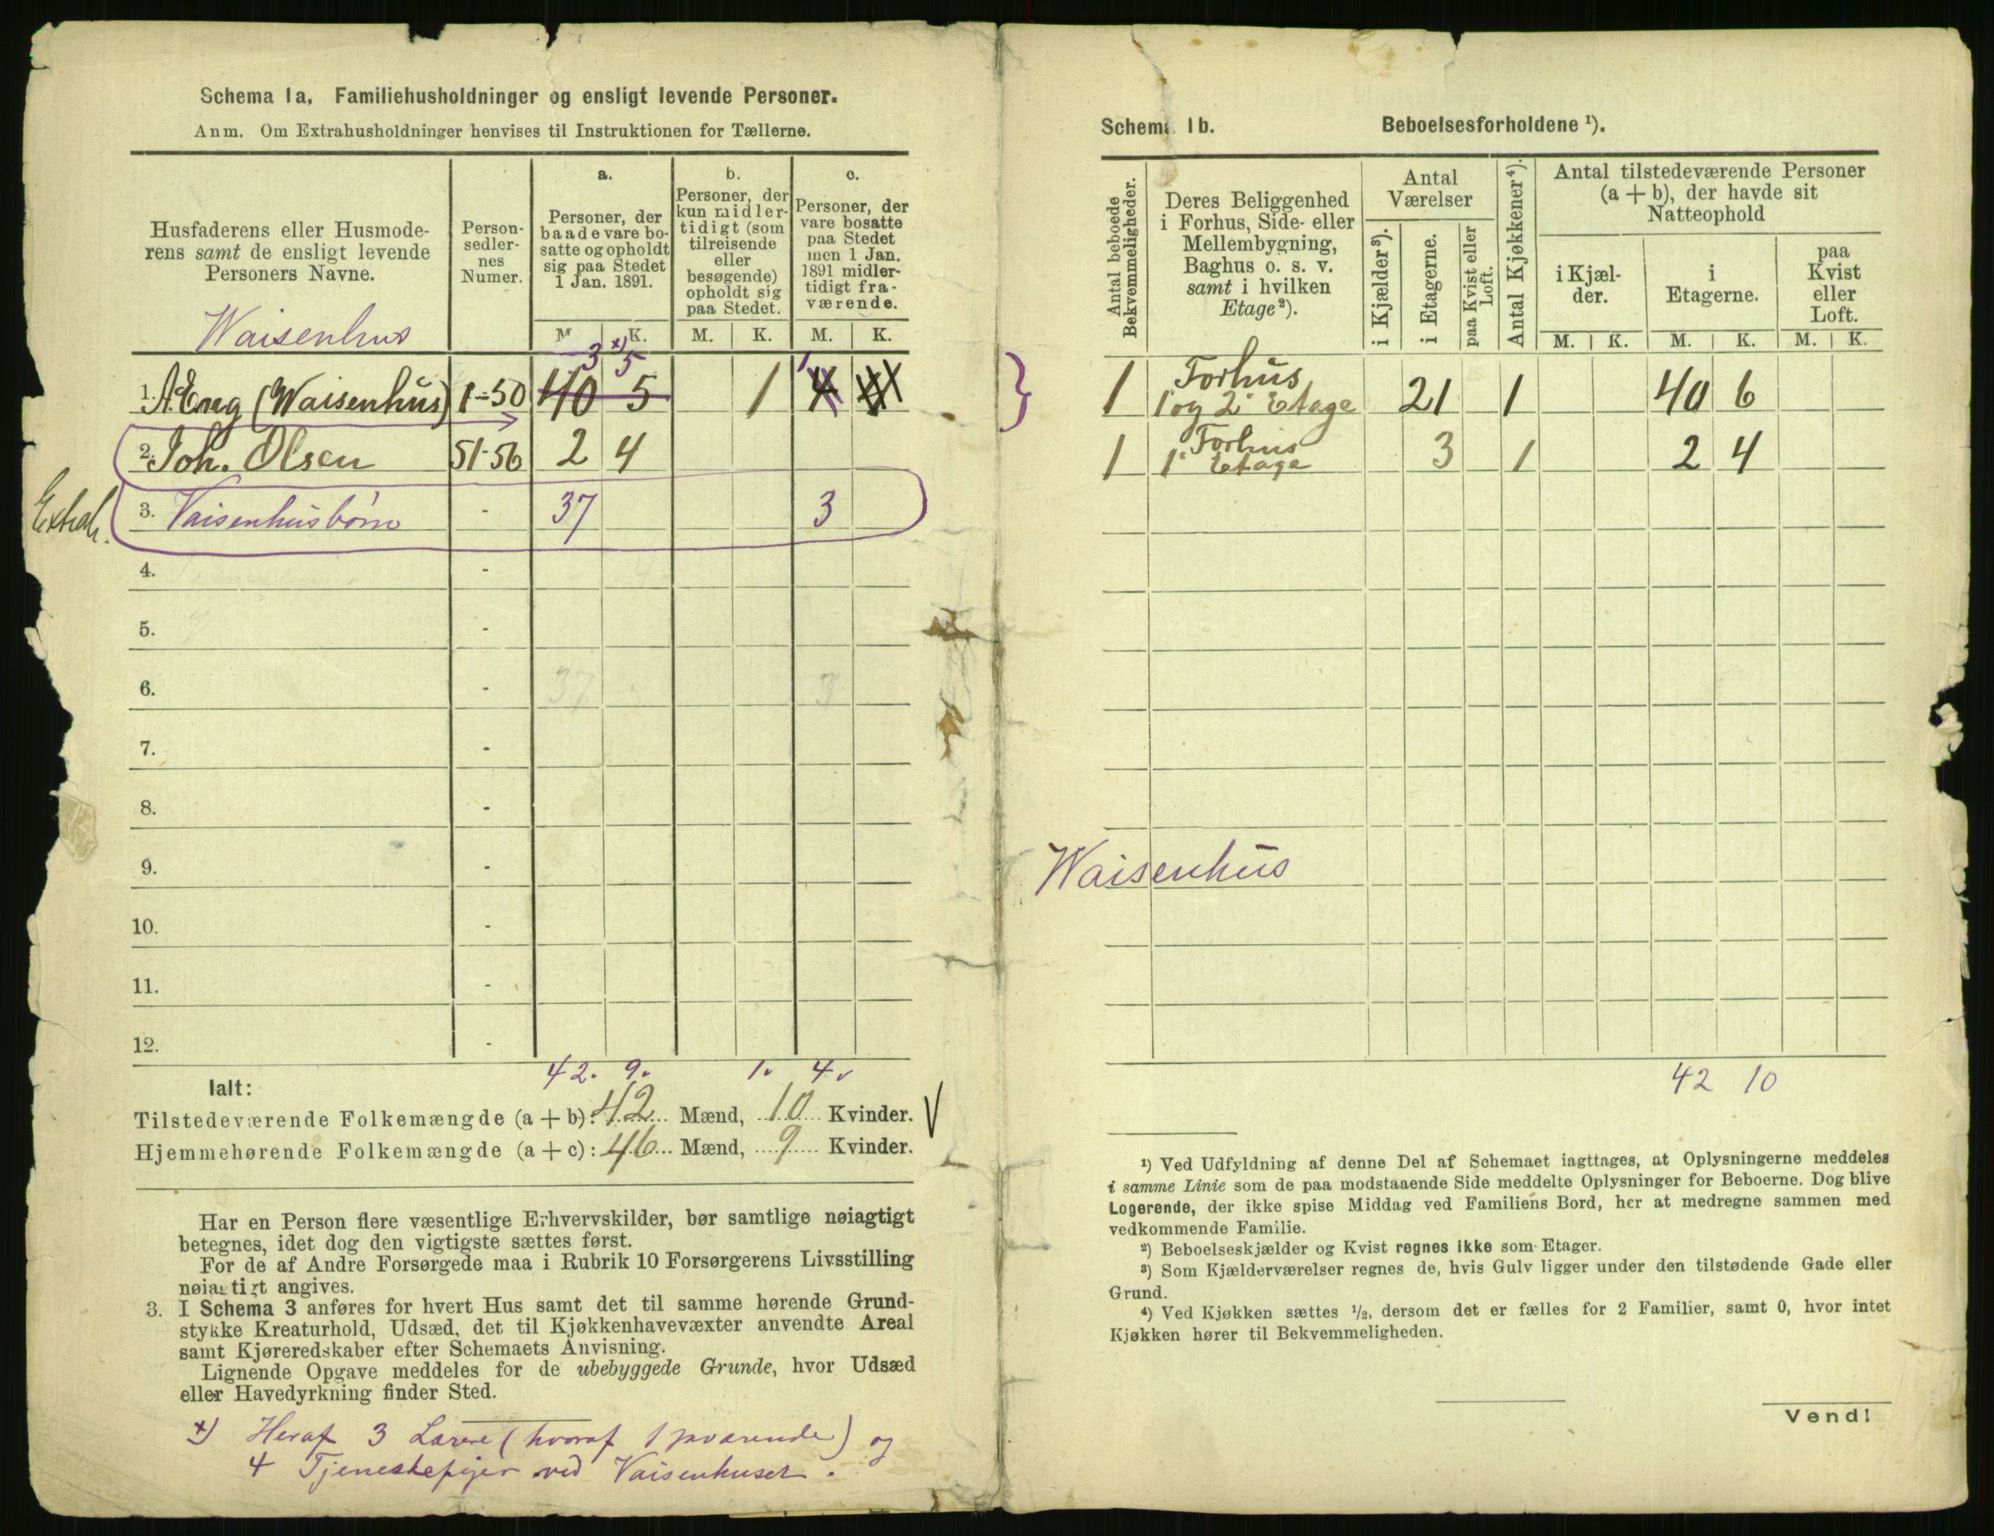 Schema 1a. Familiehusholdninger og ensligt levende Personer.
Anm. Om Extrahusholdninger henvises til Instruktionen for Tællerne.
Husfaderens eller Husmode-
rens samt de ensligt levende
Personers Navne.
Waisenhus
Person-
sedler-
nes
Numer.
a.
Personer, der
baade vare bo-
satte og opholdt
sig paa Stedet
1 Jan. 1891.
M. K.
b.
Personer, der
kun midler-
tidigt (som
tilreisende
eller
besøgende)
opholdt sig
paa Stedet.
M. K.
c.
Personer, der
vare bosatte
paa Stedet
men 1 Jan.
1891 midler-
tidigt fra-
værende.
M. K.
3 x) 5 1
1. A. Eng (Waisenhus) 1-50 40 5 1 4
2. Joh. Olsen 51-56 2 4
Extrah. 3. Vaisenhusbørn - 37 3
4. -
5. -
6. - 37 3
7. -
8. -
9. -
10. -
11. -
12. -
42. 9. 1. 4.
Ialt:
Tilstedeværende Folkemængde (a + b): 42 Mænd, 10 Kvinder. V
Hjemmehørende Folkemængde (a + c): 46 Mænd, 9 Kvinder.
Har en Person flere væsentlige Erhvervskilder, bør samtlige nøiagtigt
betegnes, idet dog den vigtigste sættes først.
For de af Andre Forsørgede maa i Rubrik 10 Forsørgerens Livsstilling
nøiagtigt angives.
3. I Schema 3 anføres for hvert Hus samt det til samme hørende Grund-
stykke Kreaturhold, Udsæd, det til Kjøkkenhavevæxter anvendte Areal
samt Kjøreredskaber efter Schemaets Anvisning.
Lignende Opgave meddeles for de ubebyggede Grunde, hvor Udsæd
eller Havedyrkning finder Sted.
x) Heraf 3 Lærere (hvoraf 1 fraværende) og
4 Tjenestepiger ved Vaisenhuset.
Schema 1b. Beboelsesforholdene ¹).
Antal beboede
Bekvemmeligheder.
Deres Beliggenhed
i Forhus, Side- eller
Mellembygning,
Baghus o. s. v.
samt i hvilken
Etage²).
Antal
Værelser
i Kjælder³).
i Etagerne.
paa Kvist eller
Loft.
Antal Kjøkkener⁴).
Antal tilstedeværende Personer
(a + b), der havde sit
Natteophold
i Kjæl-
der.
i
Etagerne.
paa
Kvist
eller
Loft.
M. K. M. K. M. K.
1 Forhus
1 og 2 Etage 21 1 40 6
1 Forhus
1 Etage 3 1 2 4
Waisenhus
42 10
¹) Ved Udfyldning af denne Del af Schemaet iagttages, at Oplysningerne meddeles
i samme Linie som de paa modstaaende Side meddelte Oplysninger for Beboerne. Dog blive
Logerende, der ikke spise Middag ved Familiens Bord, her at medregne sammen med
vedkommende Familie.
²) Beboelseskjælder og Kvist regnes ikke som Etager.
³) Som Kjælderværelser regnes de, hvis Gulv ligger under den tilstødende Gade eller
Grund.
⁴) Ved Kjøkken sættes ½, dersom det er fælles for 2 Familier, samt 0, hvor intet
Kjøkken hører til Bekvemmeligheden.
Vend!